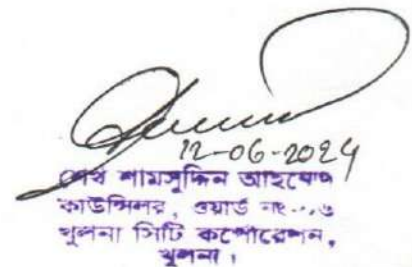 12-06-2024
শেখ শামসুদ্দিন আহমেদ
কাউন্সিলর, ওয়ার্ড নং...৩
খুলনা সিটি কর্পোরেশন,
খুলনা।